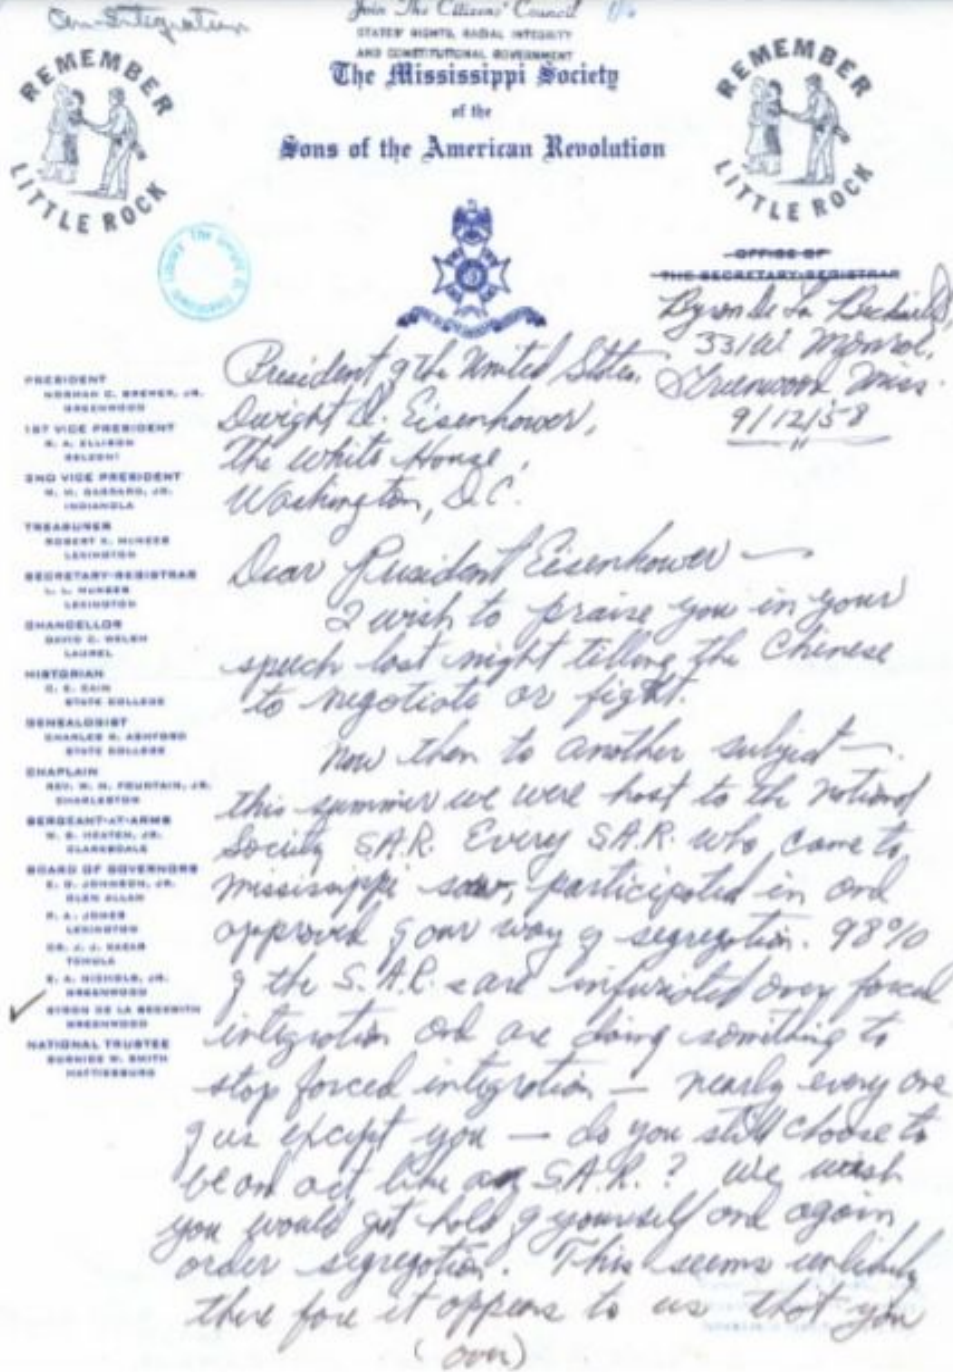 Con-Integration
Join The Citizens' Council
STATES' RIGHTS, RACIAL INTEGRITY
AND CONSTITUTIONAL GOVERNMENT
REMEMBER
LITTLE ROCK
The Mississippi Society
of the
Sons of the American Revolution
REMEMBER
LITTLE ROCK
OFFICE OF
THE SECRETARY-REGISTRAR
Byron De La Beckwith,
331 W. Monroe,
Greenwood Miss.
9/12/58
President of the United States,
Dwight D. Eisenhower,
The White House,
Washington, D.C.
PRESIDENT
NORMAN C. BREWER, JR.
GREENWOOD
1ST VICE PRESIDENT
R. A. ELLISON
BELZONI
2ND VICE PRESIDENT
M. M. GARRARD, JR.
INDIANOLA
TREASURER
ROBERT K. McNEER
LEXINGTON
SECRETARY-REGISTRAR
L. L. McNEER
LEXINGTON
CHANCELLOR
DAVID C. WELCH
LAUREL
HISTORIAN
C. E. CAIN
STATE COLLEGE
GENEALOGIST
CHARLES H. ASHFORD
STATE COLLEGE
CHAPLAIN
REV. W. H. FOUNTAIN, JR.
CHARLESTON
SERGEANT-AT-ARMS
W. S. HEATEN, JR.
CLARKSDALE
BOARD OF GOVERNORS
E. D. JOHNSON, JR.
GLEN ALLAN
P. A. JONES
LEXINGTON
DR. J. J.
TCHULA
E. A. NICHOLS, JR.
GREENWOOD
BYRON DE LA BECKWITH
GREENWOOD
NATIONAL TRUSTEE
BURNIDE W. SMITH
HATTIESBURG
Dear President Eisenhower —
I wish to praise you in your
speech last night telling the Chinese
to negotiate or fight.
Now then to another subject —
this summer we were host to the National
Society S.A.R. Every S.A.R. who came to
Mississippi saw, participated in and
approved of our way of segregation. 98%
of the S.A.R.s are infuriated over forced
integration and are doing something to
stop forced integration — nearly every one
of us except you — do you still choose to
be an act like an S.A.R.? We wish
you would get hold of yourself and again
order segregation. This seems unlikely
there fore it appears to us that you
(over)